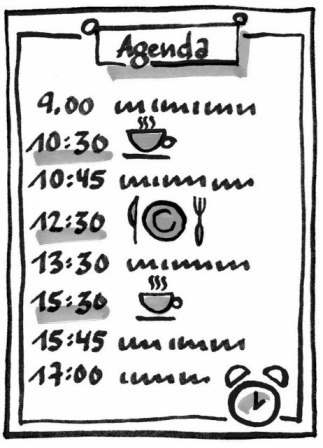 Agenda
9.00
10:30
10:45
12:30
13:30
15:30
15:45
17:00